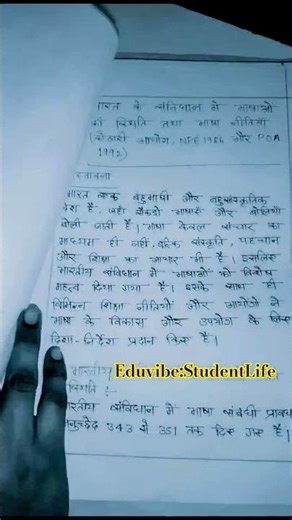 भारत के संविधान में भाषाओं
की स्थिति तथा भाषा नीतियाँ
(कोठारी आयोग, NPE 1986 और POA
1992)
स्तावना
भारत एक बहुभाषी और बहुसांस्कृतिक
देश है, जहाँ सैकड़ो भाषाएँ और बोलियाँ
बोली जाती हैं। भाषा केवल संचार का
माध्यम ही नहीं, बल्कि संस्कृति, पहचान
और शिक्षा का आधार भी है। इसलिए
भारतीय संविधान में भाषाओं को विशेष
महत्व दिया गया है। इसके साथ ही
विभिन्न शिक्षा नीतियों और आयोगों ने
भाषा के विकास और उपयोग के लिए
दिशा-निर्देश प्रदान किए हैं।
Eduvibe:StudentLife
भारतीय
स्थिति :
भारतीय संविधान में भाषा संबंधी प्राव
अनुच्छेद 343 से 351 तक दिए गए हैं।